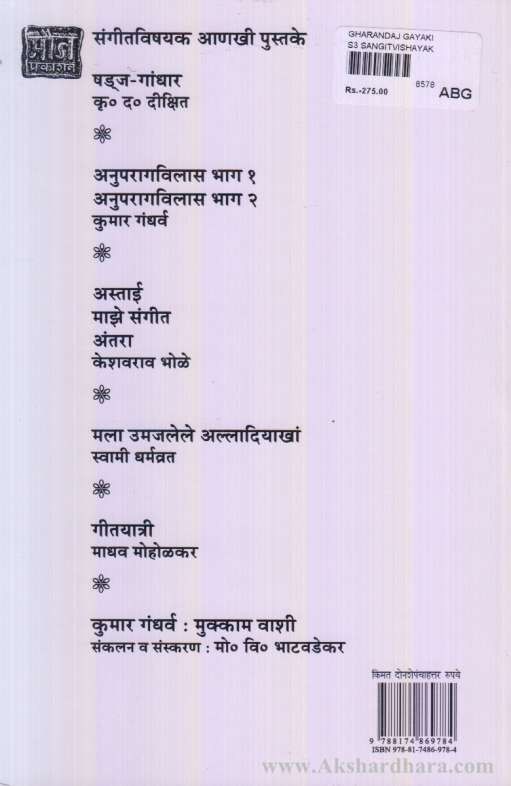 मौज
प्रकाशन
संगीतविषयक आणखी पुस्तके
षड्ज-गांधार
कृ० द० दीक्षित
अनुपरागविलास भाग १
अनुपरागविलास भाग २
कुमार गंधर्व
अस्ताई
माझे संगीत
अंतरा
केशवराव भोळे
मला उमजलेले अल्लादियाखां
स्वामी धर्मव्रत
गीतयात्री
माधव मोहोळकर
कुमार गंधर्व : मुक्काम वाशी
संकलन व संस्करण : मो० वि० भाटवडेकर
GHARANDAJ GAYAKI
S3 SANGITVISHAYAK
8578
Rs.-275.00 ABG
किंमत दोनशेपंचाहत्तर रुपये
9 788174 869784
ISBN 978-81-7486-978-4
www.Akshardhara.com